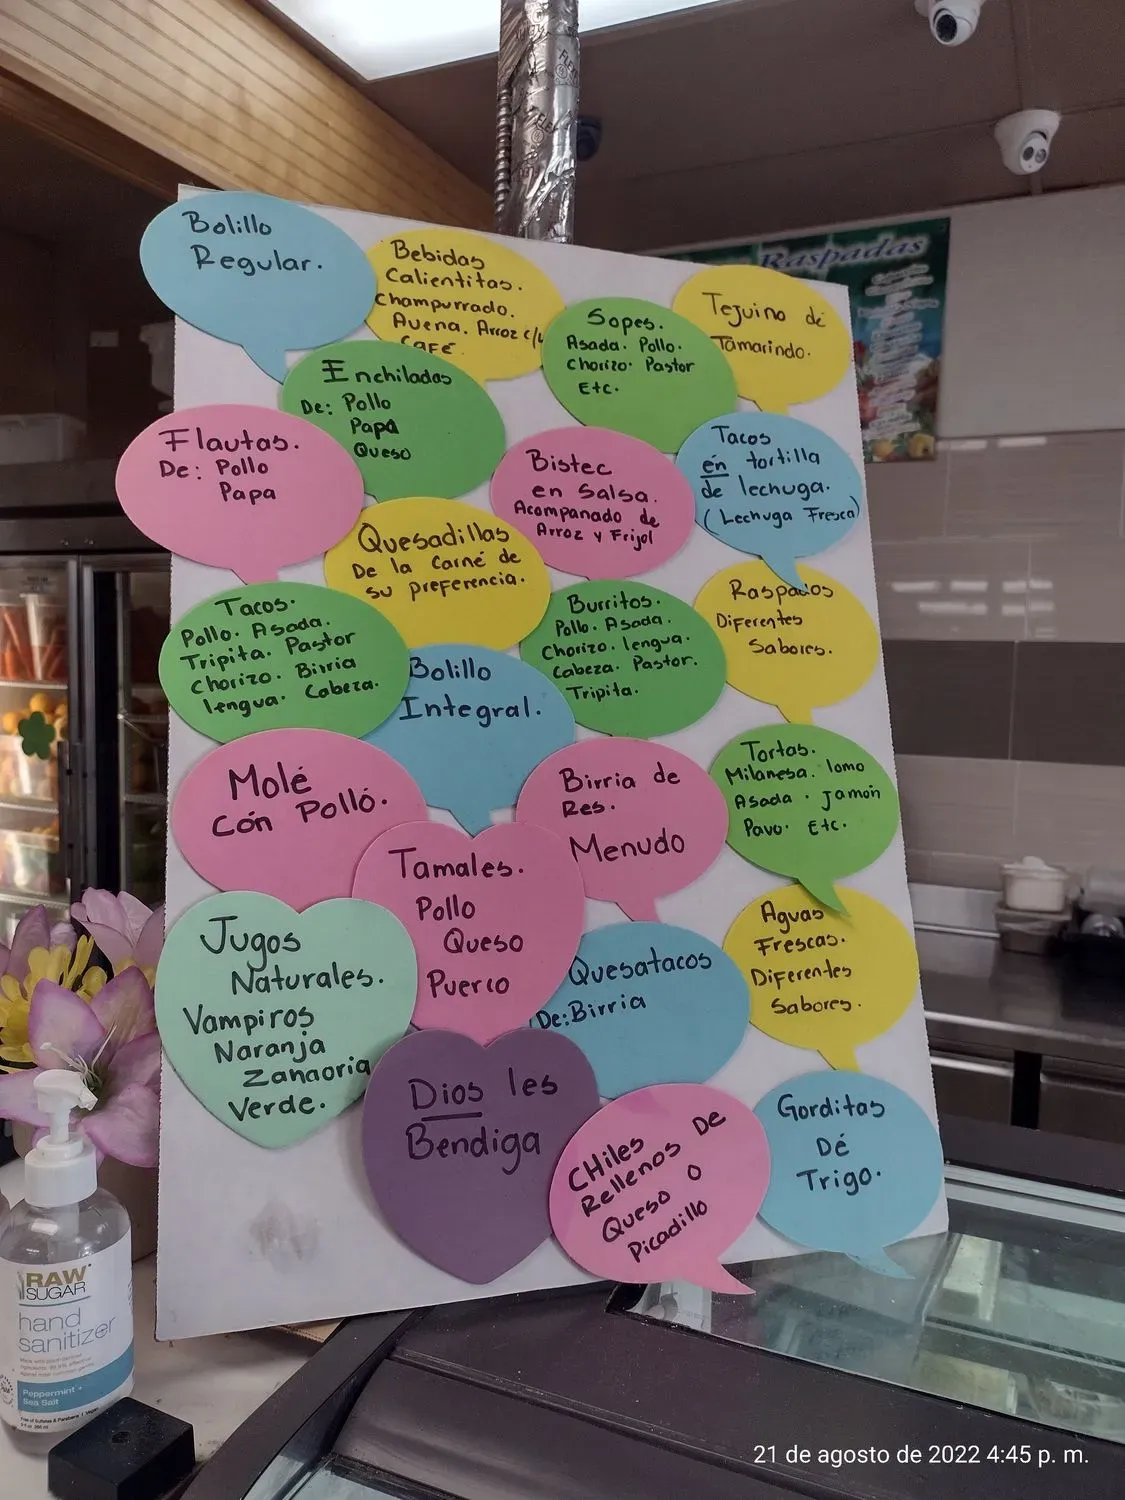 Bolillo
Regular.
Bebidas
Calientitas.
Champurrado.
Avena. Arroz c/
CAFÉ.
Sopes.
Asada. Pollo.
Chorizo. Pastor
Etc.
Raspadas
Tejuino dé
Tamarindo.
Enchiladas
De: Pollo
Papa
Queso
Flautas.
De: Pollo
Papa
Bistec
en Salsa.
Acompanado de
Arroz y Frijol
Tacos
én tortilla
de lechuga.
(Lechuga Fresca)
Quesadillas
De la Carné de
su preferencia.
Tacos.
Pollo. Asada.
Tripita. Pastor
Chorizo. Birria
lengua. Cabeza.
Bolillo
Integral.
Burritos.
Pollo. Asada.
Chorizo. lengua.
Cabeza. Pastor.
Tripita.
Raspados
Diferentes
Sabores.
Molé
Cón Polló.
Birria de
Res.
Menudo
Tortas.
Milanesa. lomo
Asada. Jamón
Pavo. Etc.
Tamales.
Pollo
Queso
Puerco
Jugos
Naturales.
Vampiros
Naranja
Zanaoria
Verde.
Quesatacos
De: Birria
Aguas
Frescas.
Diferentes
Sabores.
Dios les
Bendiga
CHiles
Rellenos De
Queso o
Picadillo
Gorditas
Dé
Trigo.
RAW
SUGAR
hand
sanitizer
Peppermint +
Sea Salt
21 de agosto de 2022 4:45 p. m.